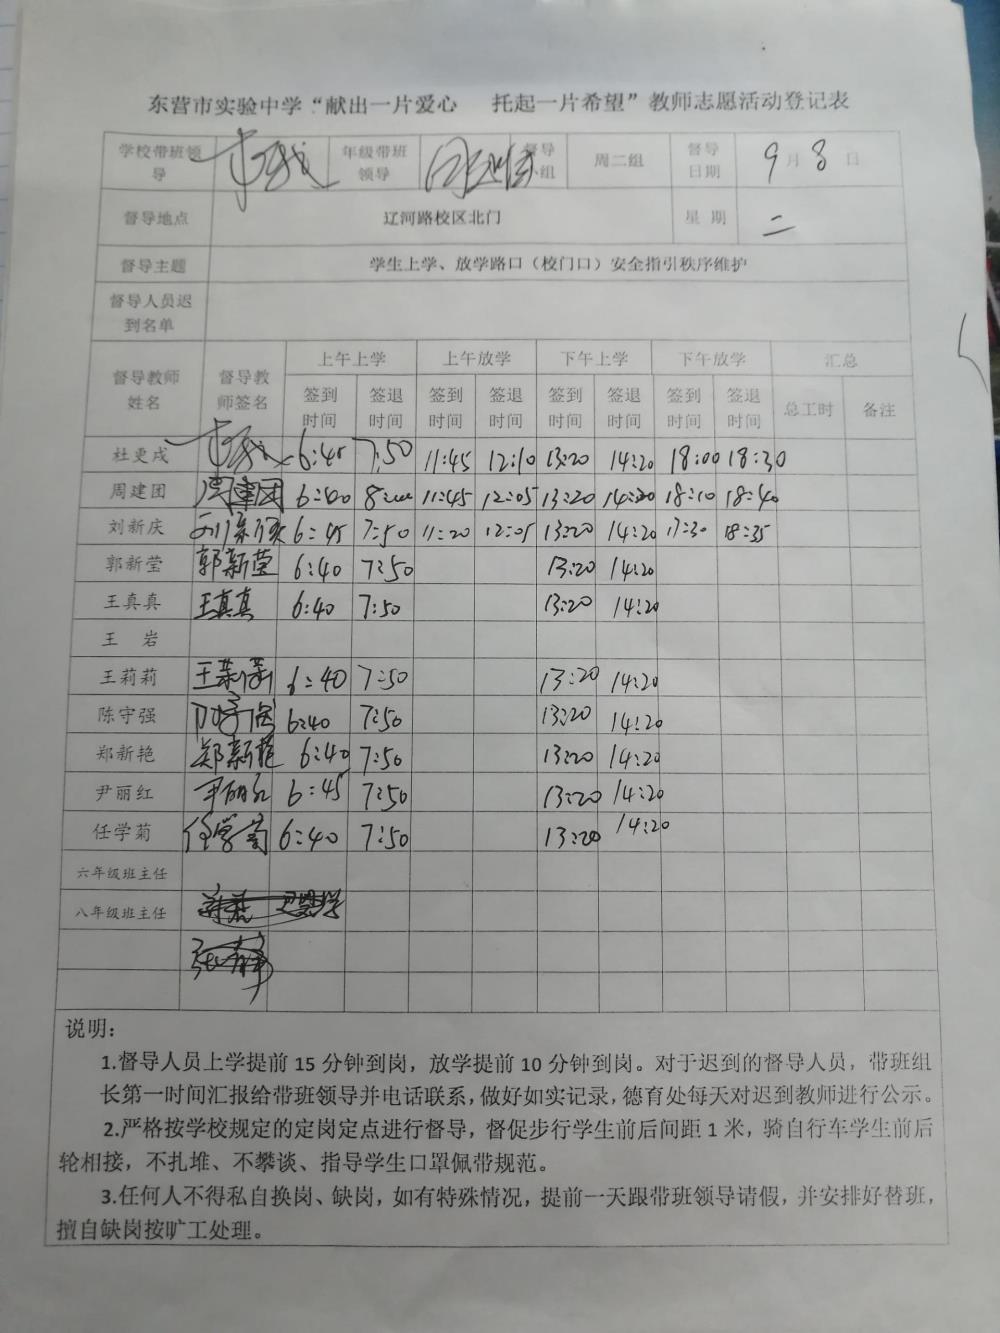 东营市实验中学“献出一片爱心 托起一片希望”教师志愿活动登记表
学校带班领导 年级带班领导 督导小组 周二组 督导日期 9月8日
督导地点 辽河路校区北门 星期 二
督导主题 学生上学、放学路口（校门口）安全指引秩序维护
督导人员迟到名单
督导教师姓名 督导教师签名 上午上学 上午放学 下午上学 下午放学 汇总
签到时间 签退时间 签到时间 签退时间 签到时间 签退时间 签到时间 签退时间 总工时 备注
杜更戌 6:45 7:50 11:45 12:10 13:20 14:20 18:00 18:30
周建团 周建团 6:40 8:00 11:45 12:05 13:20 14:20 18:10 18:40
刘新庆 刘新庆 6:45 7:50 11:20 12:05 13:20 14:20 17:30 18:35
郭新莹 郭新莹 6:40 7:50 13:20 14:20
王真真 王真真 6:40 7:50 13:20 14:20
王 岩
王莉莉 王莉莉 6:40 7:50 13:20 14:20
陈守强 陈守强 6:40 7:50 13:20 14:20
郑新艳 郑新艳 6:40 7:50 13:20 14:20
尹丽红 尹丽红 6:45 7:50 13:20 14:20
任学菊 任学菊 6:40 7:50 13:20 14:20
六年级班主任
八年级班主任
说明：
1.督导人员上学提前 15 分钟到岗，放学提前 10 分钟到岗。对于迟到的督导人员，带班组
长第一时间汇报给带班领导并电话联系，做好如实记录，德育处每天对迟到教师进行公示。
2.严格按学校规定的定岗定点进行督导，督促步行学生前后间距 1 米，骑自行车学生前后
轮相接，不扎堆、不攀谈、指导学生口罩佩带规范。
3.任何人不得私自换岗、缺岗，如有特殊情况，提前一天跟带班领导请假，并安排好替班，
擅自缺岗按旷工处理。